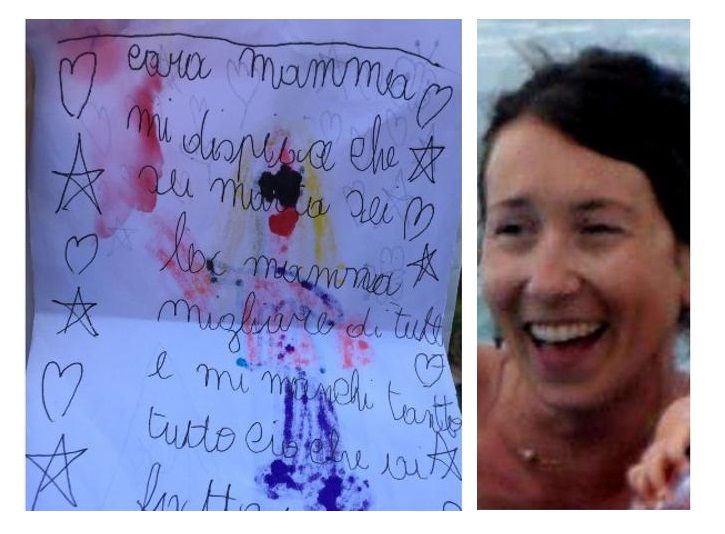 cara mamma
mi dispiace che
sei morta sei
la mamma
migliore di tutt
e mi manchi tantto
tutto ciò che